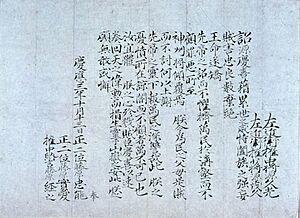 左近衛権中将源久光
左近衛権少将源茂久
詔源慶喜藉累世之威恃闔族之強妄
賊害忠良数棄絶
王命遂矯
先帝之詔而不懼擠萬民於溝壑而不
顧罪悪所至
神州将傾覆焉朕今為民之父母是賊
而不討何以上謝
先帝之霊下報萬民之深讐哉此朕之
憂憤所在諒闇而不顧者萬不可已也
汝宜體朕之心殄戮賊臣慶喜以速
奏回天之偉勲而措生霊于山嶽之安此朕之
願無敢或懈
慶應三年十月十三日 正二位藤原忠能 奉
正二位藤原實愛
権中納言藤原経之